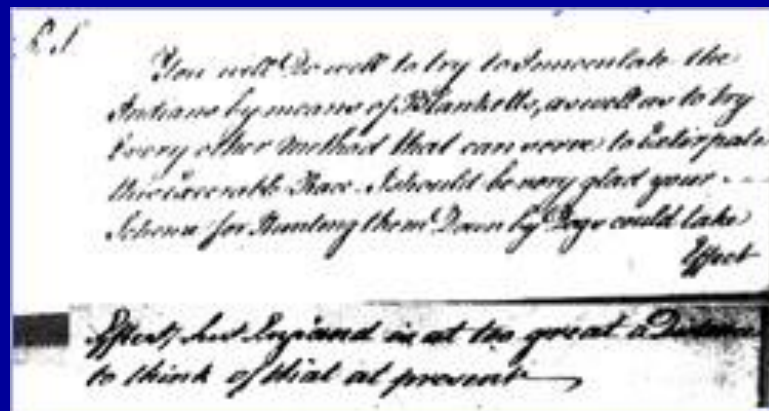 P.S.
You will Do well to try to Innoculate the
Indians by means of Blanketts, as well as to try
Every other Method that can serve to Extirpate
this Execrable Race. I should be very glad your
Scheme for Hunting them Down by Dogs could take
Effect
Effect, but England is at too great a Distance
to think of that at present